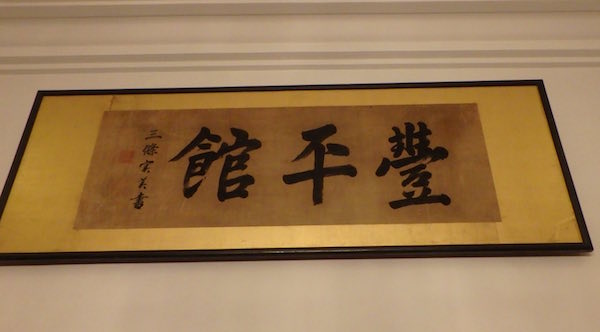 豐平館
三條実美書